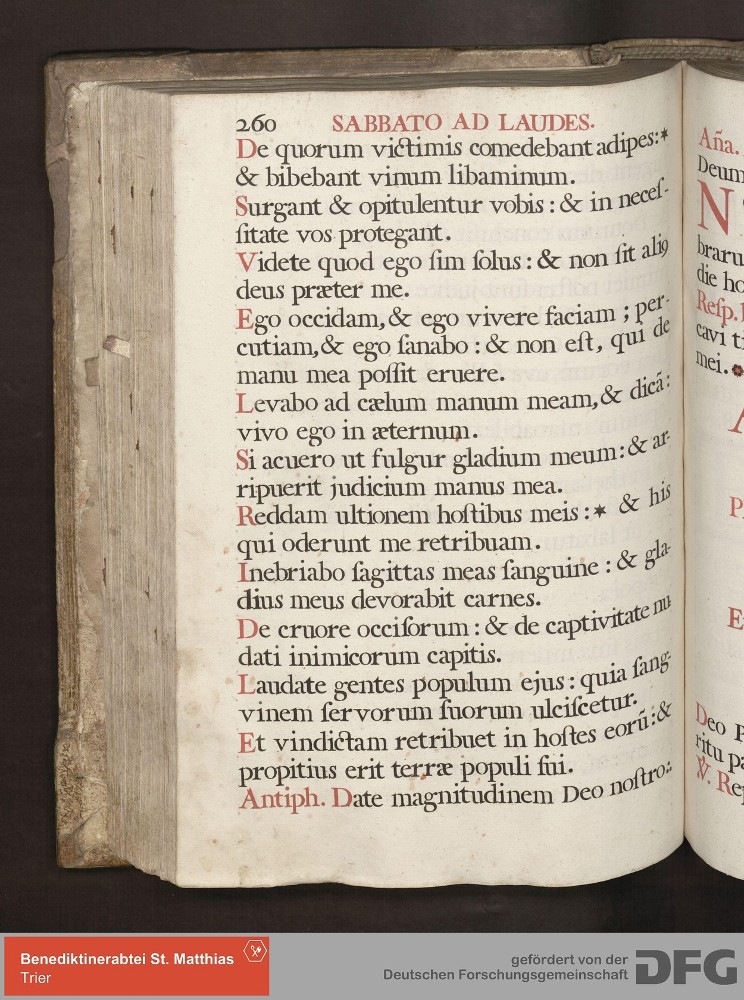 260 SABBATO AD LAUDES.
De quorum victimis comedebant adipes:*
& bibebant vinum libaminum.
Surgant & opitulentur vobis: & in neceſ-
ſitate vos protegant.
Videte quod ego ſim ſolus: & non ſit aliꝰ
deus præter me.
Ego occidam, & ego vivere faciam; per-
cutiam, & ego ſanabo: & non eſt, qui de
manu mea poſſit eruere.
Levabo ad cælum manum meam, & dicã:
vivo ego in æternum.
Si acuero ut fulgur gladium meum: & ar-
ripuerit judicium manus mea.
Reddam ultionem hoſtibus meis:* & his
qui oderunt me retribuam.
Inebriabo ſagittas meas ſanguine: & gla-
dius meus devorabit carnes.
De cruore occiſorum: & de captivitate nu
dati inimicorum capitis.
Laudate gentes populum ejus: quia ſang-
vinem ſervorum ſuorum ulciſcetur.
Et vindictam retribuet in hoſtes eorũ: &
propitius erit terræ populi ſui.
Antiph. Date magnitudinem Deo noſtro:.
Aña.
Deum
N
braru
die ho
Reſp.
cavi ti
mei.
Deo p
ritu pa
℣. Rep
Benediktinerabtei St. Matthias
Trier
gefördert von der
Deutschen Forschungsgemeinschaft
DFG